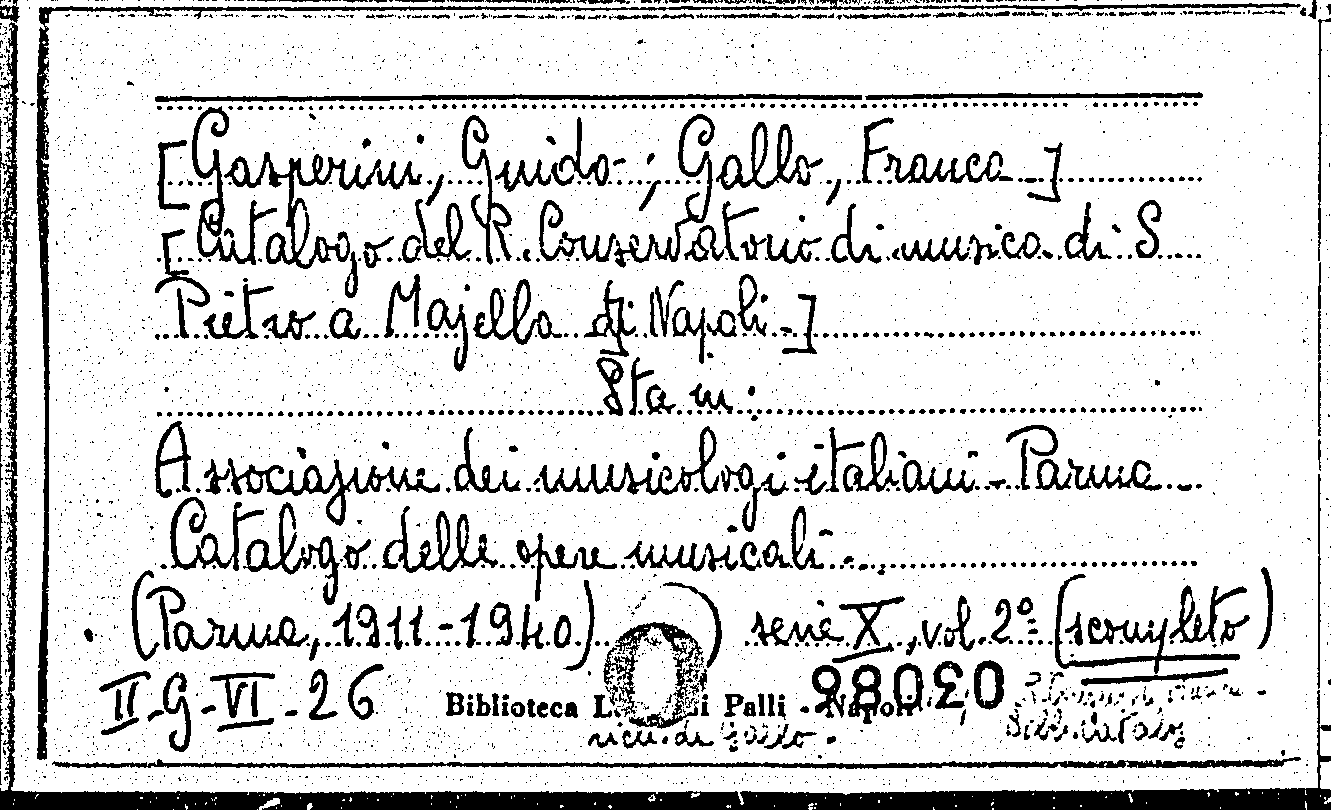 [Gasperini, Guido-; Gallo, Franca-]
[Catalogo del R. Conservatorio di musica di S
Pietro a Majella di Napoli-]
Sta in:
Associazione dei musicologi italiani-Parma-
Catalogo delle opere musicali...
(Parma, 1911-1940) ) serie X, vol. 2º (scompleto)
II-G-VI-26 Biblioteca L i Palli - Napoli 030886
di Gallo.
Bibl. Catalg